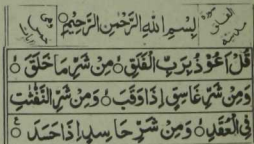 بِسْمِ اللهِ الرَّحْمٰنِ الرَّحِيْمِ
قُلْ اَعُوْذُ بِرَبِّ الْفَلَقِ ○ مِنْ شَرِّ مَا خَلَقَ ○
وَمِنْ شَرِّ غَاسِقٍ اِذَا وَقَبَ ○ وَمِنْ شَرِّ النَّفّٰثٰتِ
فِی الْعُقَدِ ○ وَمِنْ شَرِّ حَاسِدٍ اِذَا حَسَدَ ○